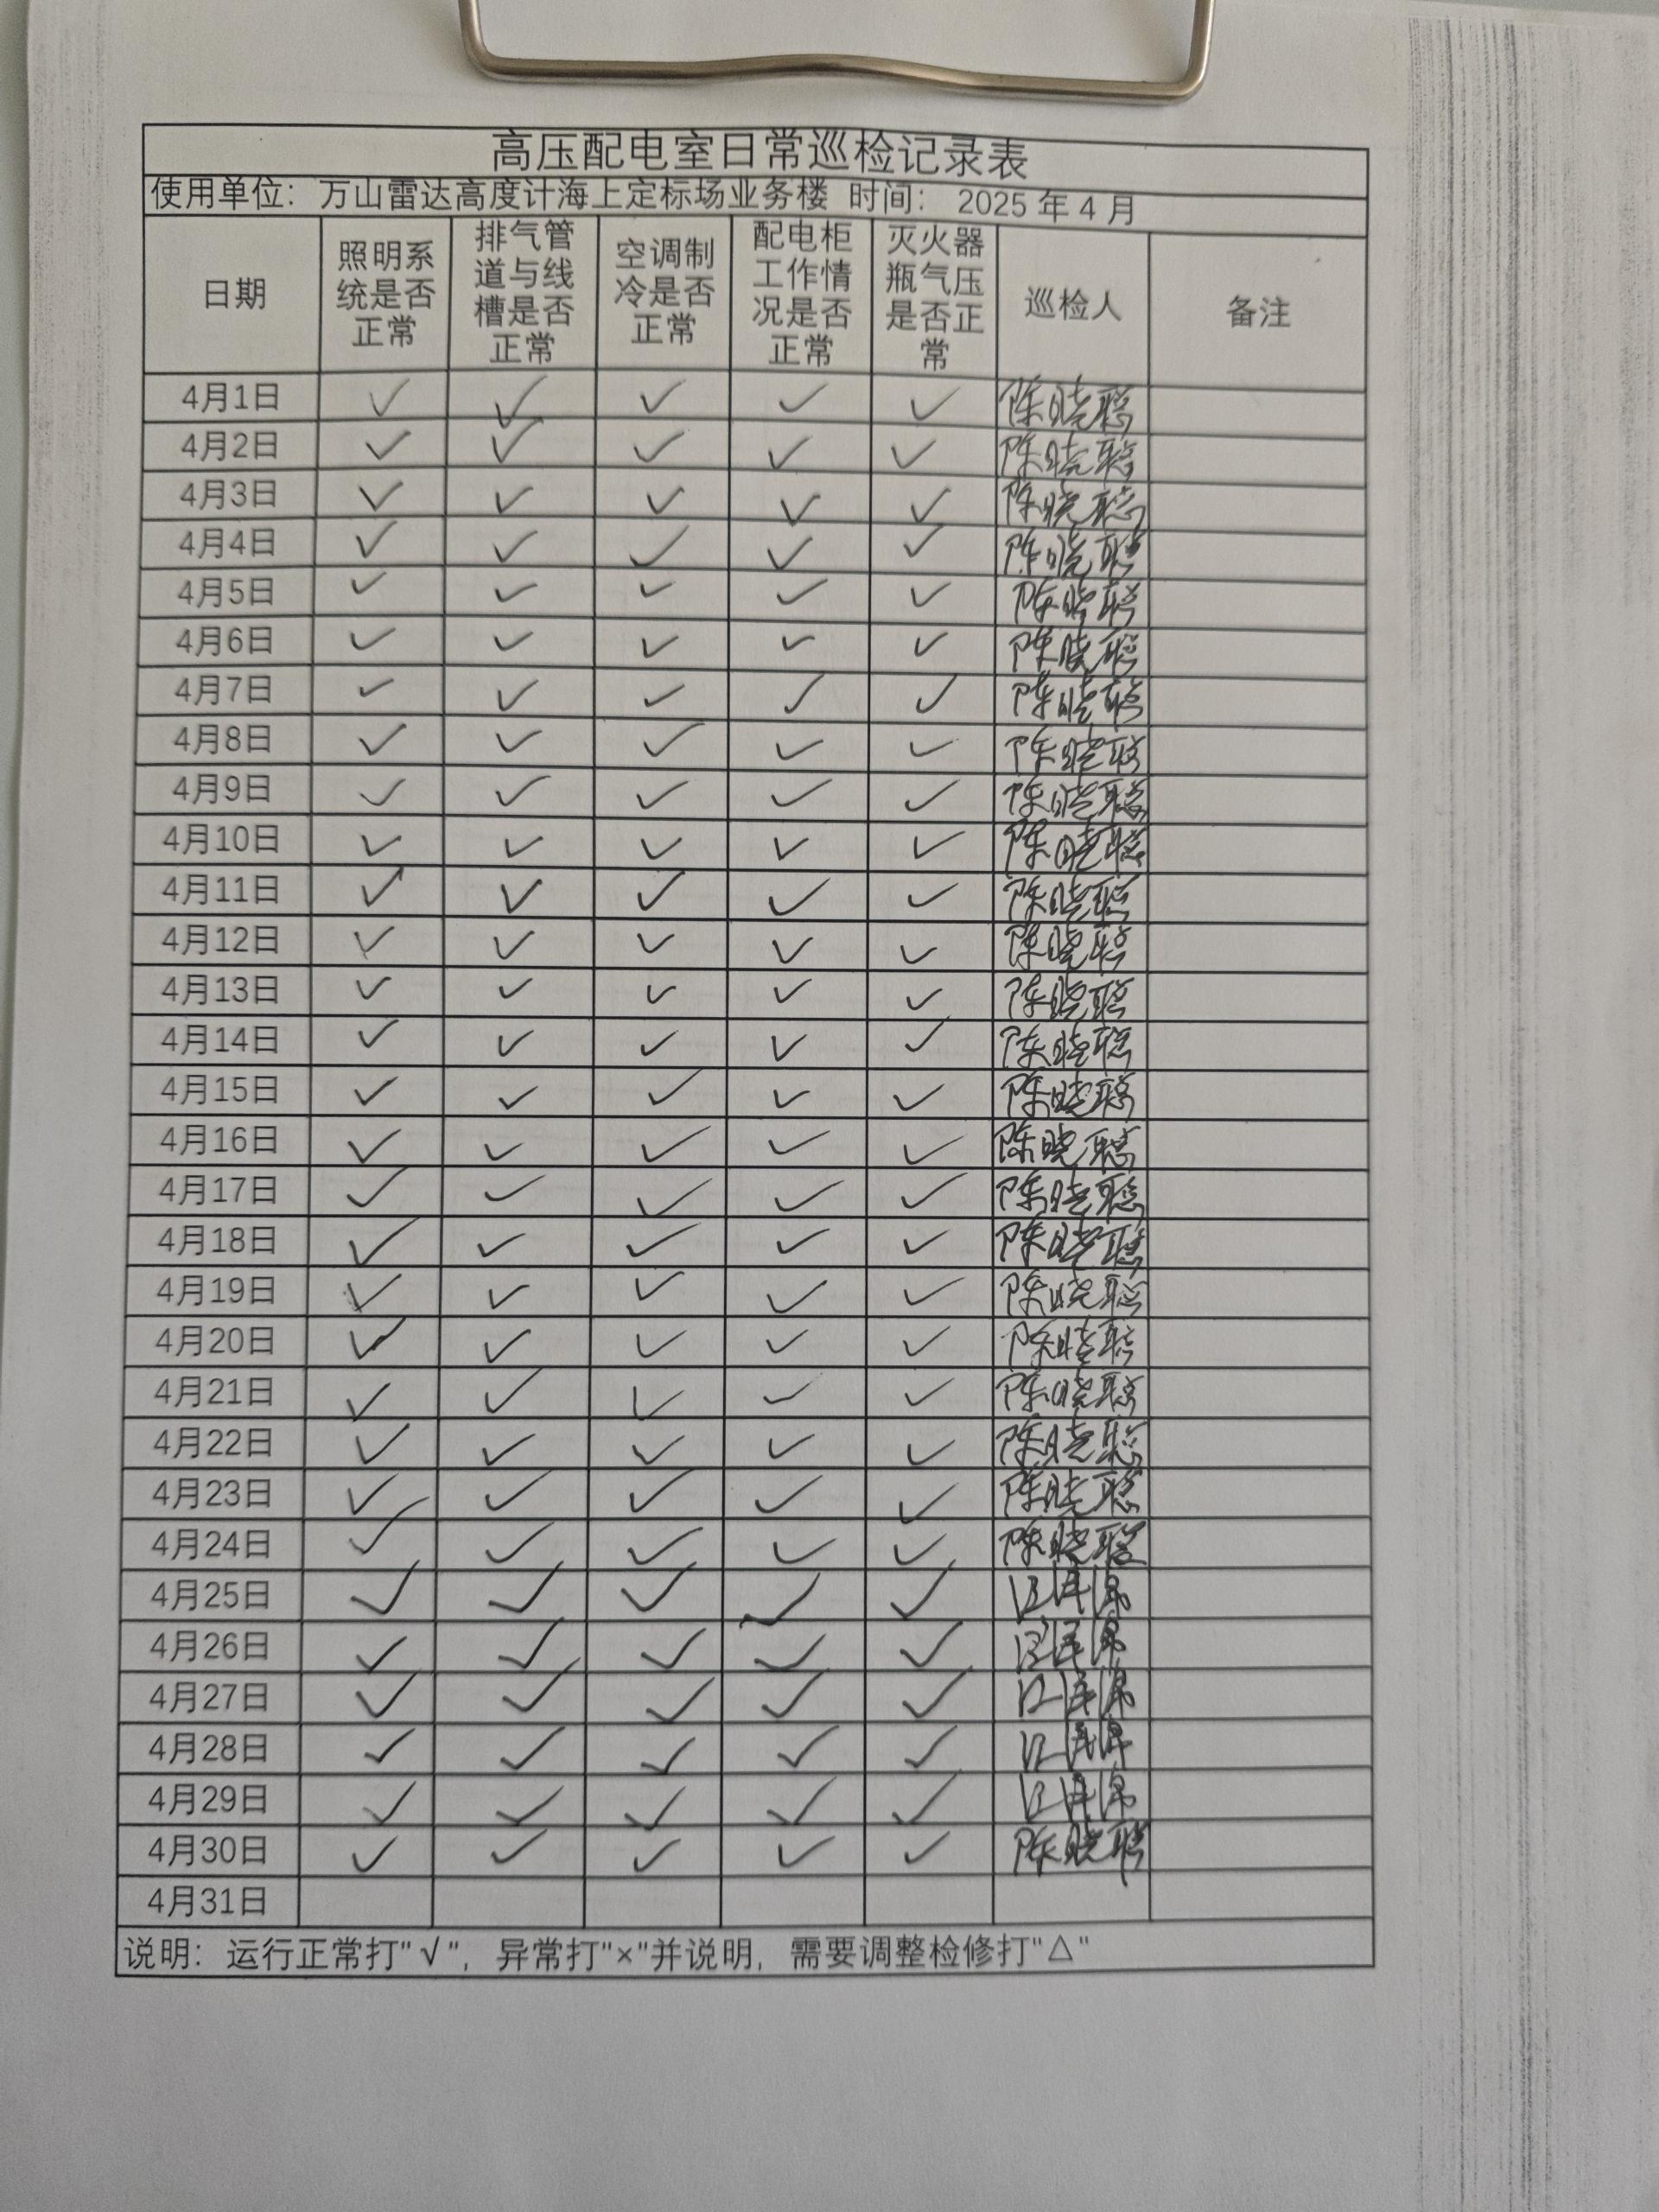 高压配电室日常巡检记录表
使用单位：万山雷达高度计海上定标场业务楼 时间： 2025 年 4 月
日期 照明系统是否正常 排气管道与线槽是否正常 空调制冷是否正常 配电柜工作情况是否正常 灭火器瓶气压是否正常 巡检人 备注
4月1日 ✓ ✓ ✓ ✓ ✓ 陈晓聪
4月2日 ✓ ✓ ✓ ✓ ✓ 陈晓聪
4月3日 ✓ ✓ ✓ ✓ ✓ 陈晓聪
4月4日 ✓ ✓ ✓ ✓ ✓ 陈晓聪
4月5日 ✓ ✓ ✓ ✓ ✓ 陈晓聪
4月6日 ✓ ✓ ✓ ✓ ✓ 陈晓聪
4月7日 ✓ ✓ ✓ ✓ ✓ 陈晓聪
4月8日 ✓ ✓ ✓ ✓ ✓ 陈晓聪
4月9日 ✓ ✓ ✓ ✓ ✓ 陈晓聪
4月10日 ✓ ✓ ✓ ✓ ✓ 陈晓聪
4月11日 ✓ ✓ ✓ ✓ ✓ 陈晓聪
4月12日 ✓ ✓ ✓ ✓ ✓ 陈晓聪
4月13日 ✓ ✓ ✓ ✓ ✓ 陈晓聪
4月14日 ✓ ✓ ✓ ✓ ✓ 陈晓聪
4月15日 ✓ ✓ ✓ ✓ ✓ 陈晓聪
4月16日 ✓ ✓ ✓ ✓ ✓ 陈晓聪
4月17日 ✓ ✓ ✓ ✓ ✓ 陈晓聪
4月18日 ✓ ✓ ✓ ✓ ✓ 陈晓聪
4月19日 ✓ ✓ ✓ ✓ ✓ 陈晓聪
4月20日 ✓ ✓ ✓ ✓ ✓ 陈晓聪
4月21日 ✓ ✓ ✓ ✓ ✓ 陈晓聪
4月22日 ✓ ✓ ✓ ✓ ✓ 陈晓聪
4月23日 ✓ ✓ ✓ ✓ ✓ 陈晓聪
4月24日 ✓ ✓ ✓ ✓ ✓ 陈晓聪
4月25日 ✓ ✓ ✓ ✓ ✓
4月26日 ✓ ✓ ✓ ✓ ✓
4月27日 ✓ ✓ ✓ ✓ ✓
4月28日 ✓ ✓ ✓ ✓ ✓
4月29日 ✓ ✓ ✓ ✓ ✓
4月30日 ✓ ✓ ✓ ✓ ✓ 陈晓聪
4月31日
说明：运行正常打"√"，异常打"×"并说明，需要调整检修打"△"